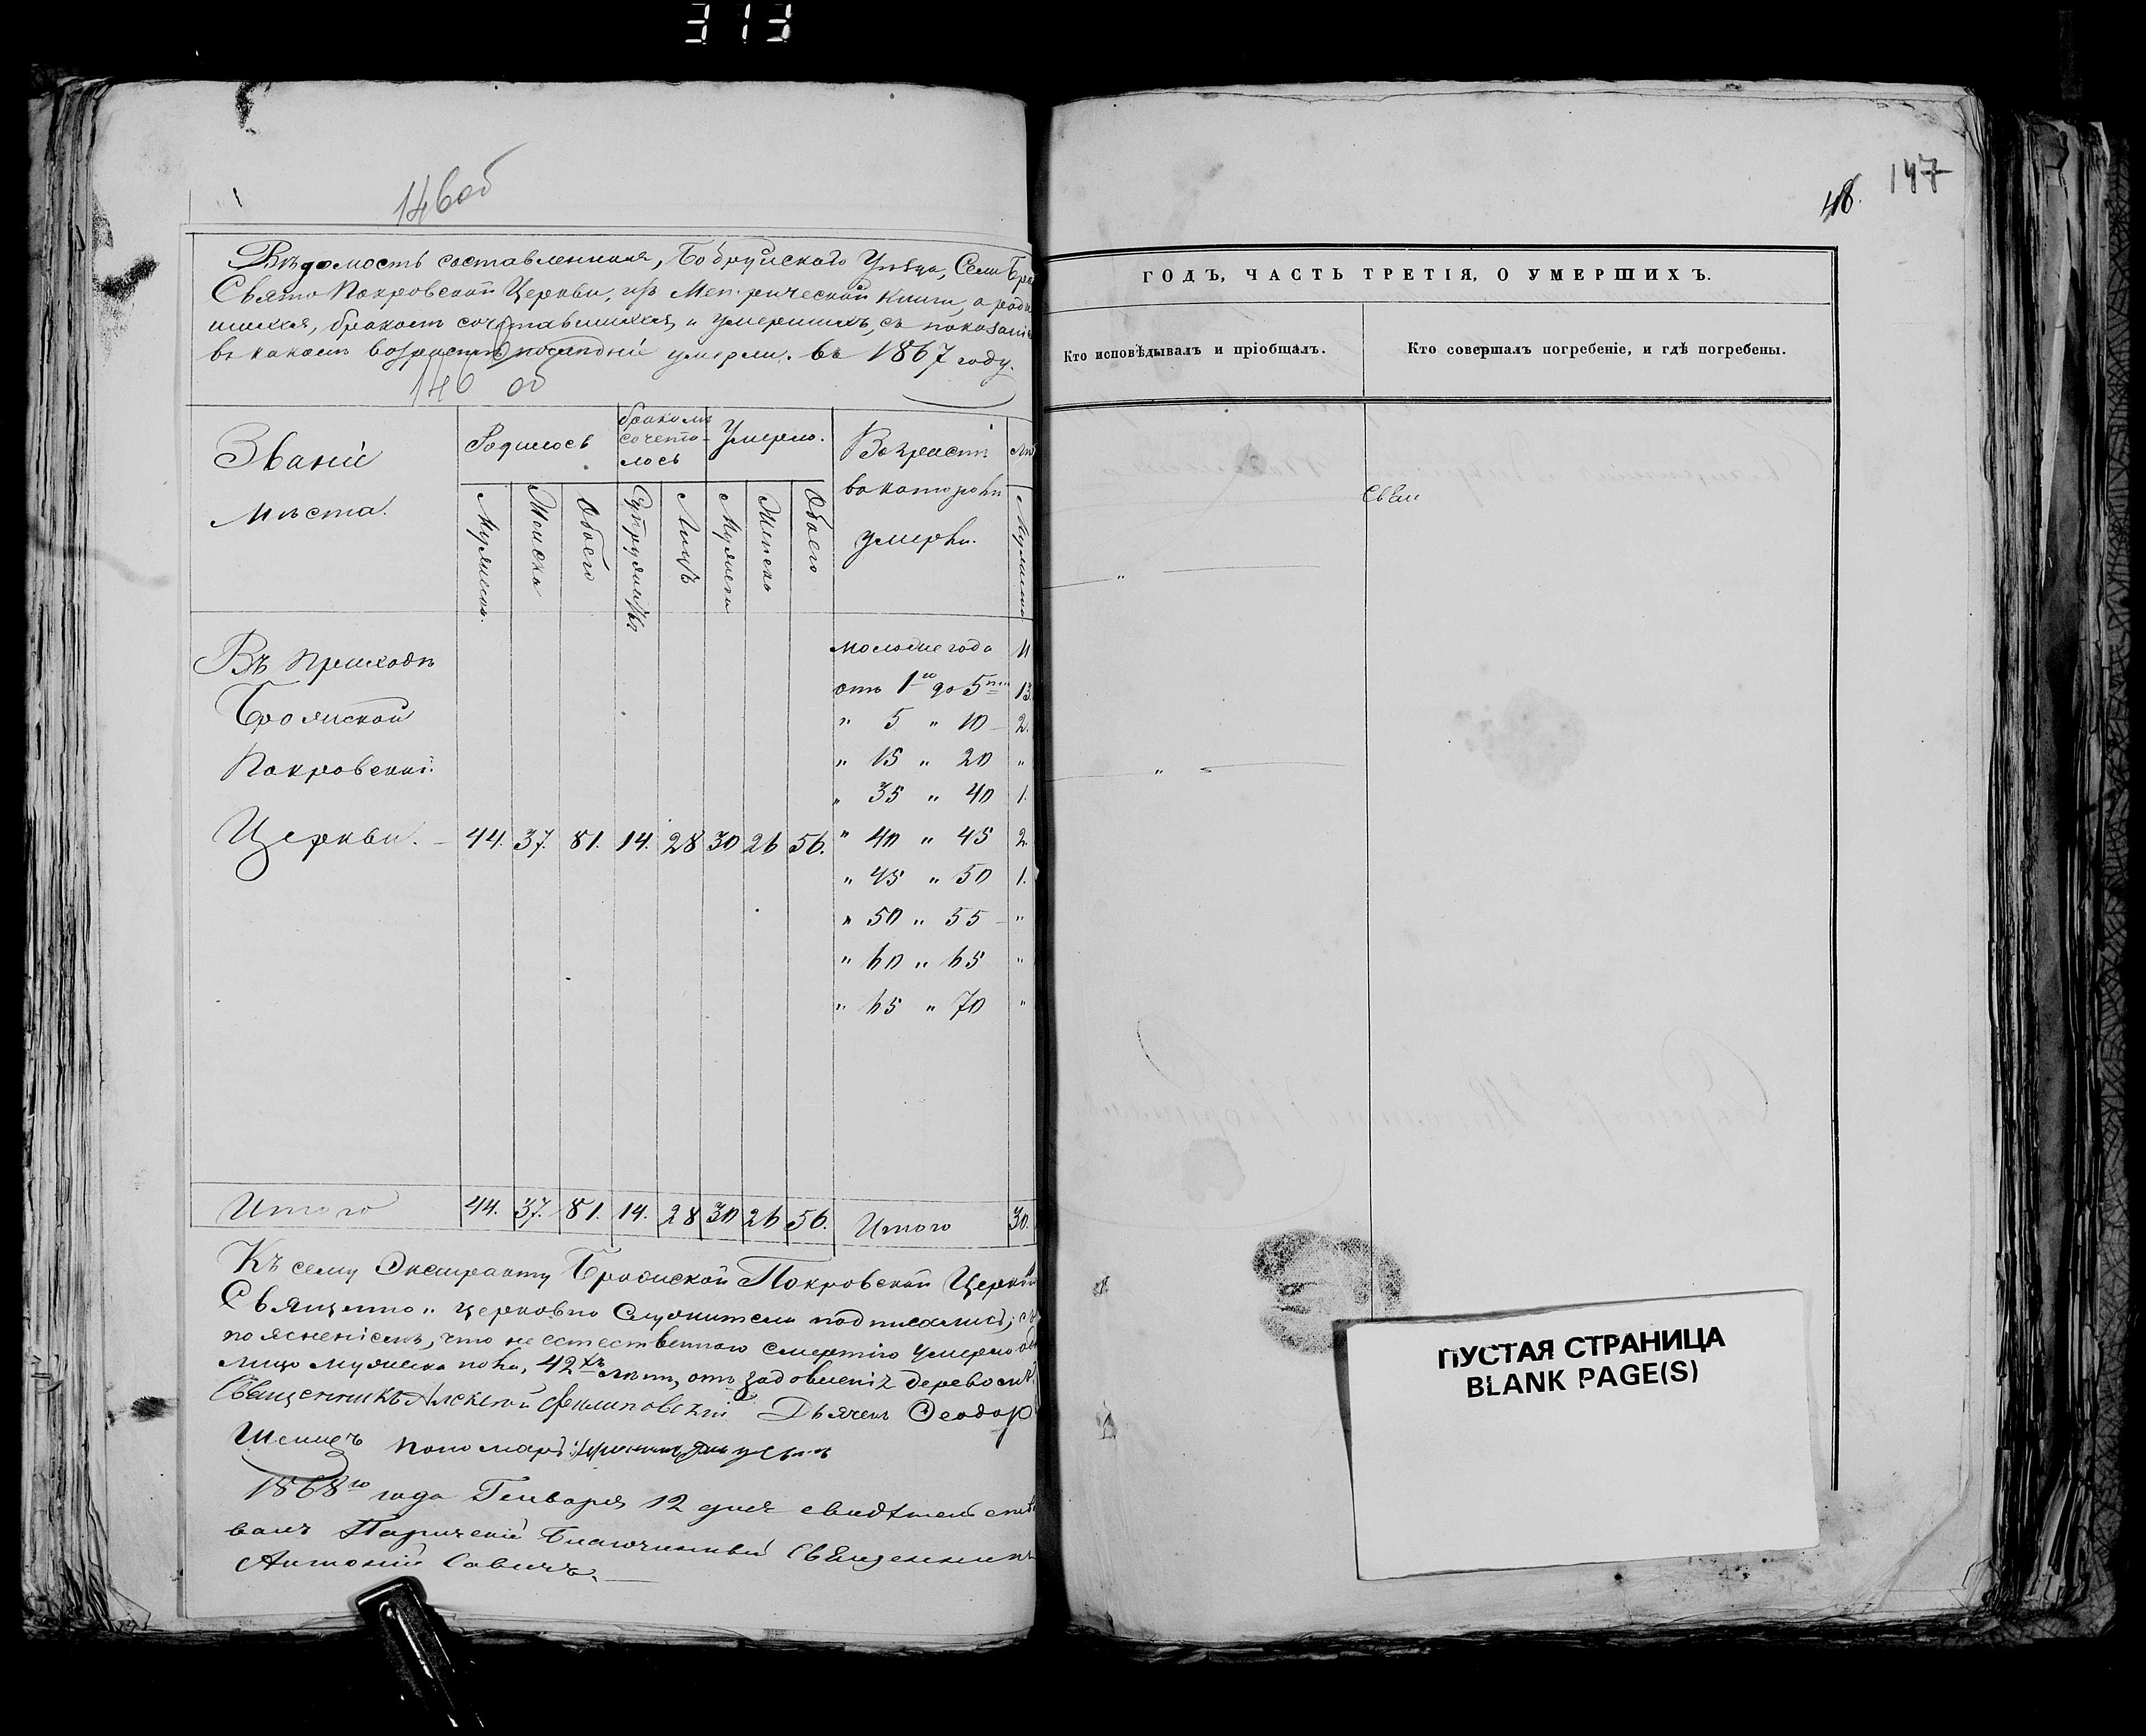 313
146об
Вѣдомость составленная, Бобруйскаго Уѣзда, Села
Свято Покровской Церкви, изъ Метрической книги, о роди
шихся, бракомъ сочетавшихся и умершихъ, съ показаніе
въ какомъ возрастѣ послѣдніи умерли. въ 1867 году.
146 об
Званіе мѣста.
Родилось
бракомъ сочета-лось
Умерло.
Возрастъ въ которомъ умерли.
Мужеска.
Женска
Обоего
Супружествъ
Лицъ
Мужеска
Женска
Обоего
Мужеска
Въ Приходѣ
Брожской
Покровской
Церкви. 44. 37. 81. 14. 28 30 26 56.
моложе года 11
отъ 1го до 5ти 13.
" 5 " 10 2.
" 15 " 20 "
" 35 " 40 1.
" 40 " 45 2.
" 45 " 50 1.
" 50 " 55 "
" 60 " 65 "
" 65 " 70 "
Итого 44. 37. 81. 14. 28 30 26 56. Итого 30.
Къ сему Экстракту Брожской Покровской Церкви
Священно-церковно служители подписались, съ
поясненіемъ, что не естественною смертію умерло
лицо мужеска пола, 42хъ лѣтъ, отъ задовленія деревомъ
Священникъ Алексѣй Филиповскій Дьячекъ Ѳеодоръ
пономарь
1868го года Генваря 12 дня свидѣтельство
валъ Паричскій Благочинный Священникъ
Антоній Савичъ.
48.
147
ГОДЪ, ЧАСТЬ ТРЕТІЯ, О УМЕРШИХЪ.
Кто исповѣдывалъ и пріобщалъ.
Кто совершалъ погребеніе, и гдѣ погребены.
ПУСТАЯ СТРАНИЦА
BLANK PAGE(S)